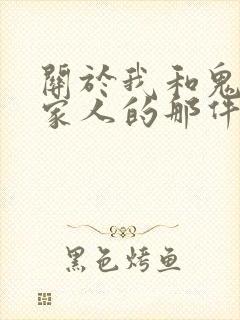 關於我和鬼
家人的那件
黑色烤鱼